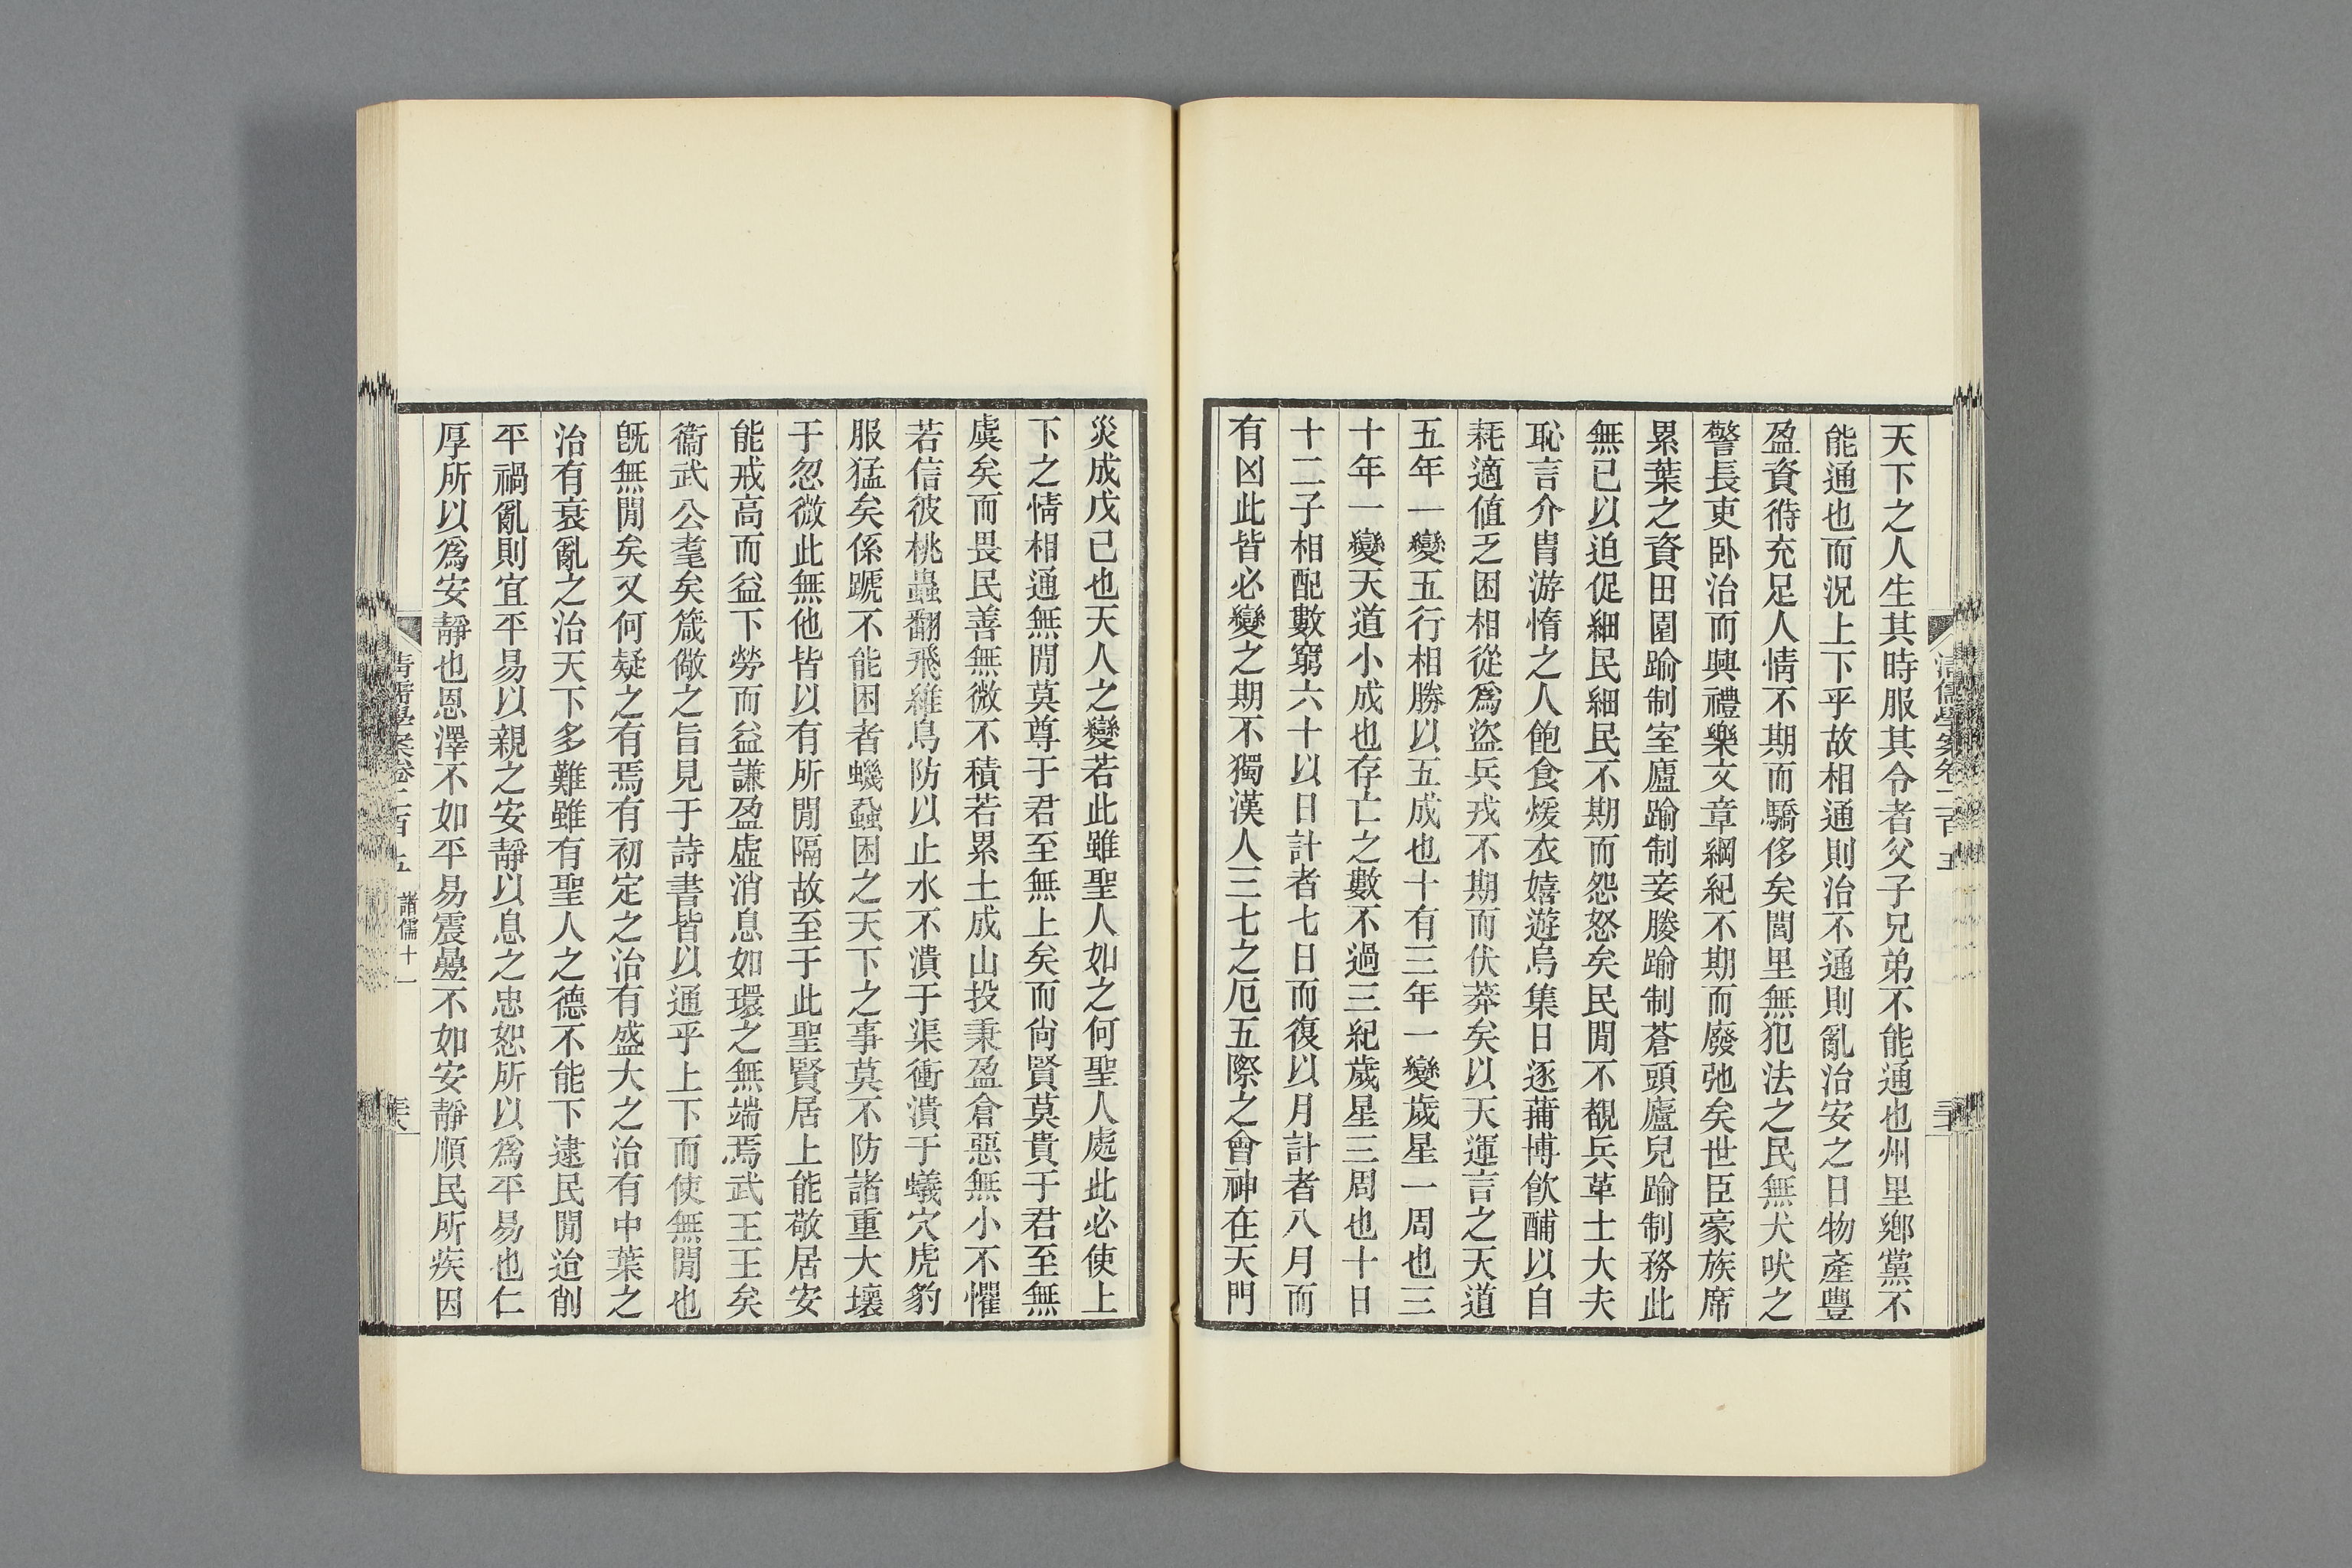 天下之人生其時服其令者父子兄弟不能通也州里鄉黨不
能通也而況上下乎故相通則治不通則亂治安之日物產豐
盈資待充足人情不期而驕侈矣閭里無犯法之民無犬吠之
警長吏卧治而興禮樂文章綱紀不期而廢弛矣世臣豪族席
累葉之資田園踰制室廬踰制妾媵踰制蒼頭廬兒踰制務此
無已以迫促細民細民不期而怨怒矣民閒不覩兵革士大夫
恥言介胄游惰之人飽食煖衣嬉遊烏集日逐蒱博飲酺以自
耗適值乏困相從爲盜兵戎不期而伏莽矣以天運言之天道
五年一變五行相勝以五成也十有三年一變歲星一周也三
十年一變天道小成也存亡之數不過三紀歲星三周也十日
十二子相配數窮六十以日計者七日而復以月計者八月而
有凶此皆必變之期不獨漢人三七之厄五際之會神在天門
清儒學案卷二百五
災成戊己也天人之變若此雖聖人如之何聖人處此必使上
下之情相通無閒莫尊于君至無上矣而尙賢莫貴于君至無
虞矣而畏民善無微不積若累土成山投秉盈倉惡無小不懼
若信彼桃蟲翻飛維鳥防以止水不潰于渠衝潰于蟻穴虎豹
服猛矣係蹏不能困者蟣蝨困之天下之事莫不防諸重大壞
于忽微此無他皆以有所閒隔故至于此聖賢居上能敬居安
能戒高而益下勞而益謙盈虛消息如環之無端焉武王王矣
衞武公耄矣箴儆之旨見于詩書皆以通乎上下而使無閒也
旣無閒矣又何疑之有焉有初定之治有盛大之治有中葉之
治有衰亂之治天下多難雖有聖人之德不能下逮民閒迨削
平禍亂則宜平易以親之安靜以息之忠恕所以爲平易也仁
厚所以爲安靜也恩澤不如平易震疊不如安靜順民所疾因
清儒學案卷二百五 諸儒十一